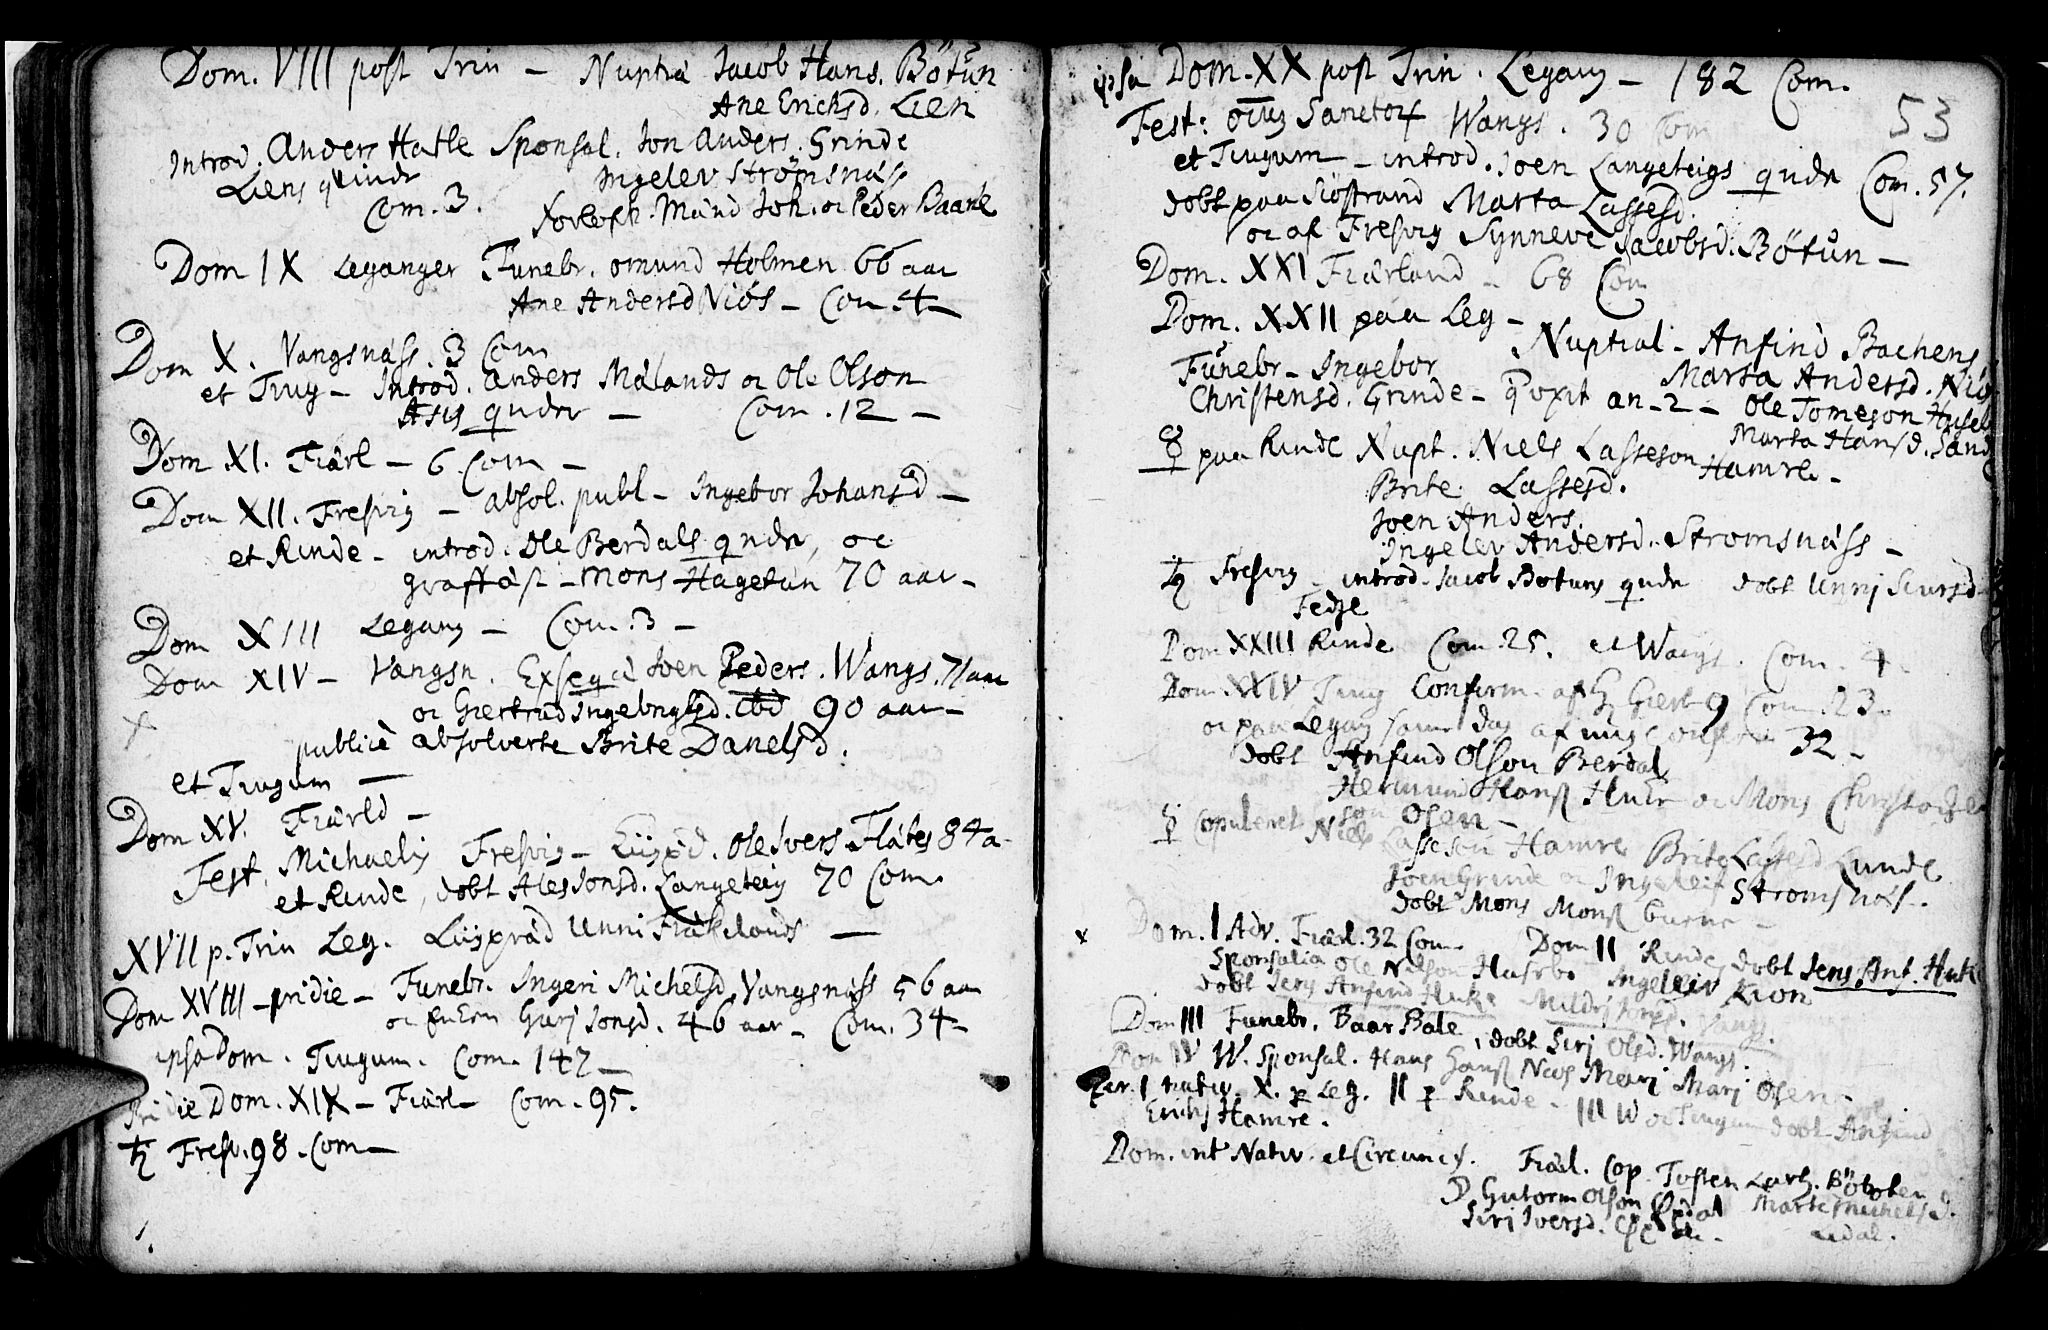 Dom. VIII post Trin - Nuptiæ Jacob Hans. Bötün
Ane Erichsd. Lien
Introd. Anders Hatle Sponsal. Jon Anders. Grinde
Liens qvindr Ingelev Strömsnäss
Com. 3. Forlofth. Mänd Joh. oc Peder Baarde
Dom IX Leganger Funebr. omund Holmen 66 aar
Ane Andersd Niös - Com 4 -
Dom X. Vangsnäss. 3 Com
et Tiug - Introd. Anders Mälands oc Ole Olson
Asis qvdr - Com. 12 -
Dom XI. Fiärl - 6 Com -
Dom XII. Fresvig - absol. publ - Ingebor Johansd -
et Rinde - introd. Ole Berdals qvdr, oc
graffäst - Mons Hagetun 70 aar -
Dom XIII Legang - Com. 3 -
Dom XIV - Vangsn. Exseqiæ Joen Peders. Wangs. 71 aar
oc Giertrud Ingebrigtsd. ibid 90 aar -
publicè absolverte Brite Danelsd.
et Tiugum -
Dom XV. Fiärld -
Fest. Michaelis Fresvig - Ole Ivers. Flätes 84 a.
et Rinde, dobt Ales Jonsd. Langeteig 70 Com.
XVII p. Trin Leg. Liigpræd Unni -
Dom XVIII - pridie - Funebr. Ingeri Michelsd. Vangsnäss 56 aar
oc Guri Jonsd. 46 aar - Com. 34 -
ipsa Dom. Tiugum. Com. 142 -
Pridie Dom. XIX - Fiärl - Com. 95.
♄ Fresv. 98. Com -
ipsa Dom. XX post Trin. Legang - 182 Com.
53
Fest: Sanctor Wangs. 30 Com
et Tiugum - introd. Joen Langeteigs qvdr Com. 57.
dobt paa Siöstrand Marta Lassesd.
oc af Fresvig Synneve Jacobsd. Bötün -
Dom. XXI Fiärland - 68 Com
Dom. XXII paa Leg -
Nuptial - Anfind Bachens
Funebr - Ingebor Marta Andersd. Niös
Christensd. Grinde - an - 2 - Ole Tomeson Huseb
Marta Hansd. Sand
paa Rinde Nupt. Niels Lasseson Hamre -
Brite Lassesd.
Joen Anders.
Ingelev Andersd. Strömsnäss -
♄ Fresvig - introd. Jacob Botuns qvdr dobt Unni Siursd
Fedje
Dom XXIII Rinde Com. 25. et Wangs. Com. 4
Dom. XXIV Tiug Confirm. af H Giert 9 Com. 23.
oc paa Legang samme dag af mig 32 -
dobt Anfind Olson Berdal
Hermund Hanss Huke oc Mons Christophe
son Olsen -
Copuleret Niels Lasseson Hamre Brite Lassesd Lunde
Joen Grinde oc Ingeleif Stromsnäss.
dobt Mons Monss
Dom. I Adv. Fiärl. 32 Com Dom II Rinde, dobt Jens Anf. Huk
Sponsalia Ole Nilson Husebo Ingelleiv Kron
dobt Jens Anfind Huke Mildri Wangs.
Dom III Funebr. Baar Bale, dobt Siri Olsd. Wangs.
Dom IV W. Sponsal. Hans Hanss Nios Mari Olsen -
Fer. I nativ. X. p Leg. II p Rinde - III W oc Tiugum dobt Anfind
Erichs Hamre.
Dom. int Nativ. et Circumcis. Fiärl. Cop. Tosten Lars. Böiolen
Gutorm Olson Marte Michelsd.
Siri Iversd.